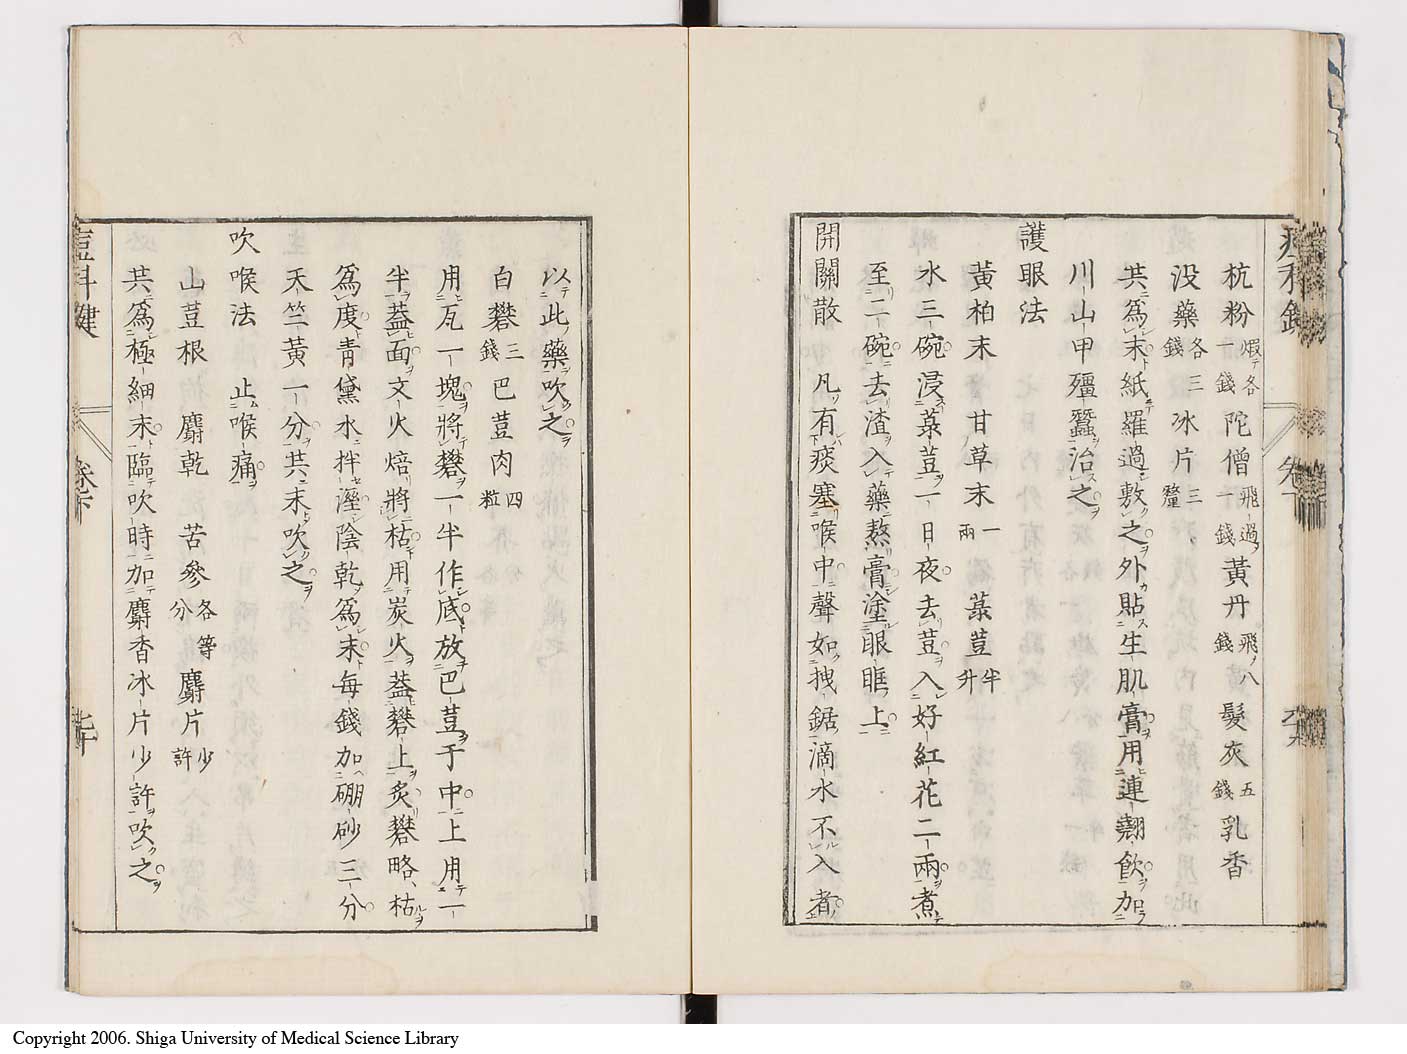 杭粉煆各一錢陀僧飛過一錢黃丹飛八錢髮灰五錢乳香
没藥各三錢氷片三釐
共為末紙羅過敷之外貼生肌膏用連翹飲加
川山甲殭蠶治之
護眼法
黃柏末 甘草末一兩 菉荳半升
水三碗浸菉荳一日夜去荳入好紅花二兩煮
至二碗去渣入藥熬膏塗眼眶上
開關散 凡有痰塞喉中聲如拽鋸滴水不入者
以此藥吹之
白礬三錢巴荳肉四粒
用瓦一塊將礬一半作底放巴荳于中上用一
半葢面文火焙將枯用炭火葢礬上炙礬略枯
為度青黛水拌溼陰乾為末每錢加硼砂三分
天竺黃一分共末吹之
吹喉法 止喉痛
山荳根 麝乾 苦參各等分麝片少許
共為極細末臨吹時加麝香冰片少許吹之
荳科鍵 卷下 七十
Copyright 2006. Shiga University of Medical Science Library